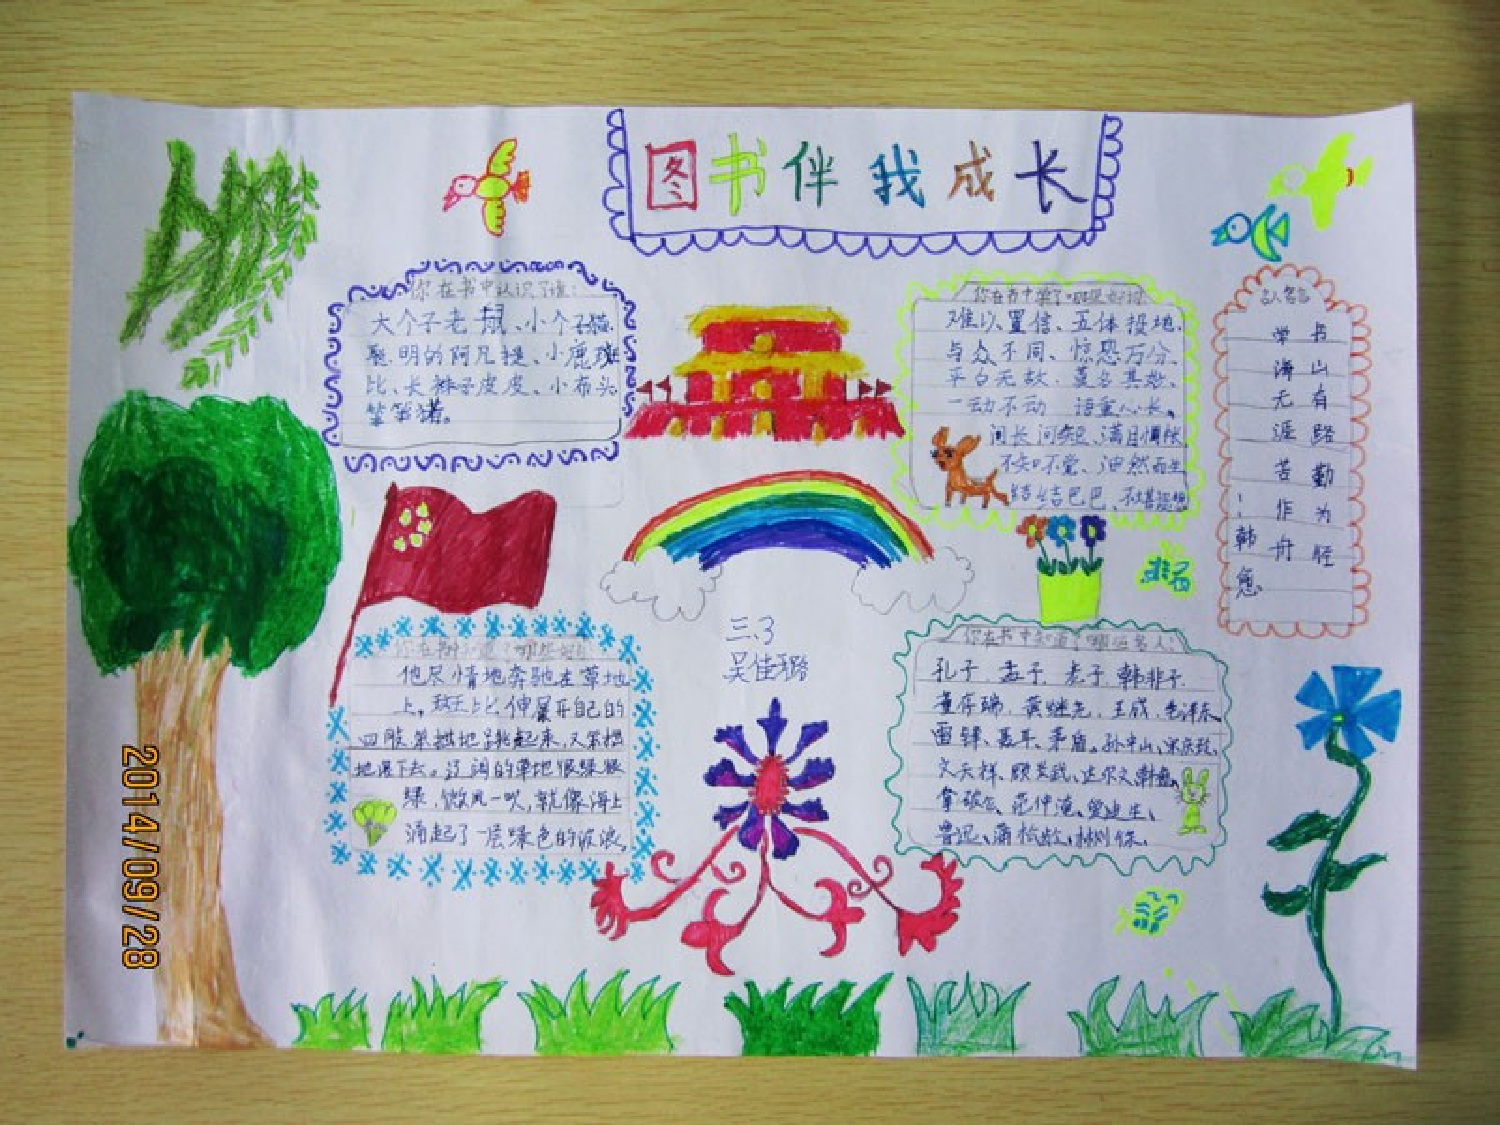 图书伴我成长
你在书中认识了谁:
大个子老鼠、小个子猫、
聪明的阿凡提、小鹿斑
比、长袜子皮皮、小布头
笨笨猪。
你在书中学了哪些好词
难以置信、五体投地、
与众不同、惊恐万分、
平白无故、莫名其妙、
一动不动 语重心长、
问长问短、满目惆怅
不知不觉、油然而生
结结巴巴、
名人名言
书山有路勤为径
学海无涯苦作舟
!
韩愈
三.3
吴佳璐
他尽情地奔驰在草地
上,斑比伸展开自己的
四肢笨拙地跳起来,又笨拙
地落下去。这阔的草地很绿很
绿,微风一吹,就像海上
涌起了一层绿色的波浪。
你在书中知道了哪些名人:
孔子、孟子、老子、韩非子、
董存瑞、黄继光、王成、毛泽东、
雷锋、聂耳、茅盾、孙中山、宋庆龄、
文天祥、顾炎武、达尔文、
拿破仑、范仲淹、爱迪生、
鲁迅、蒲松龄、
2014/09/28